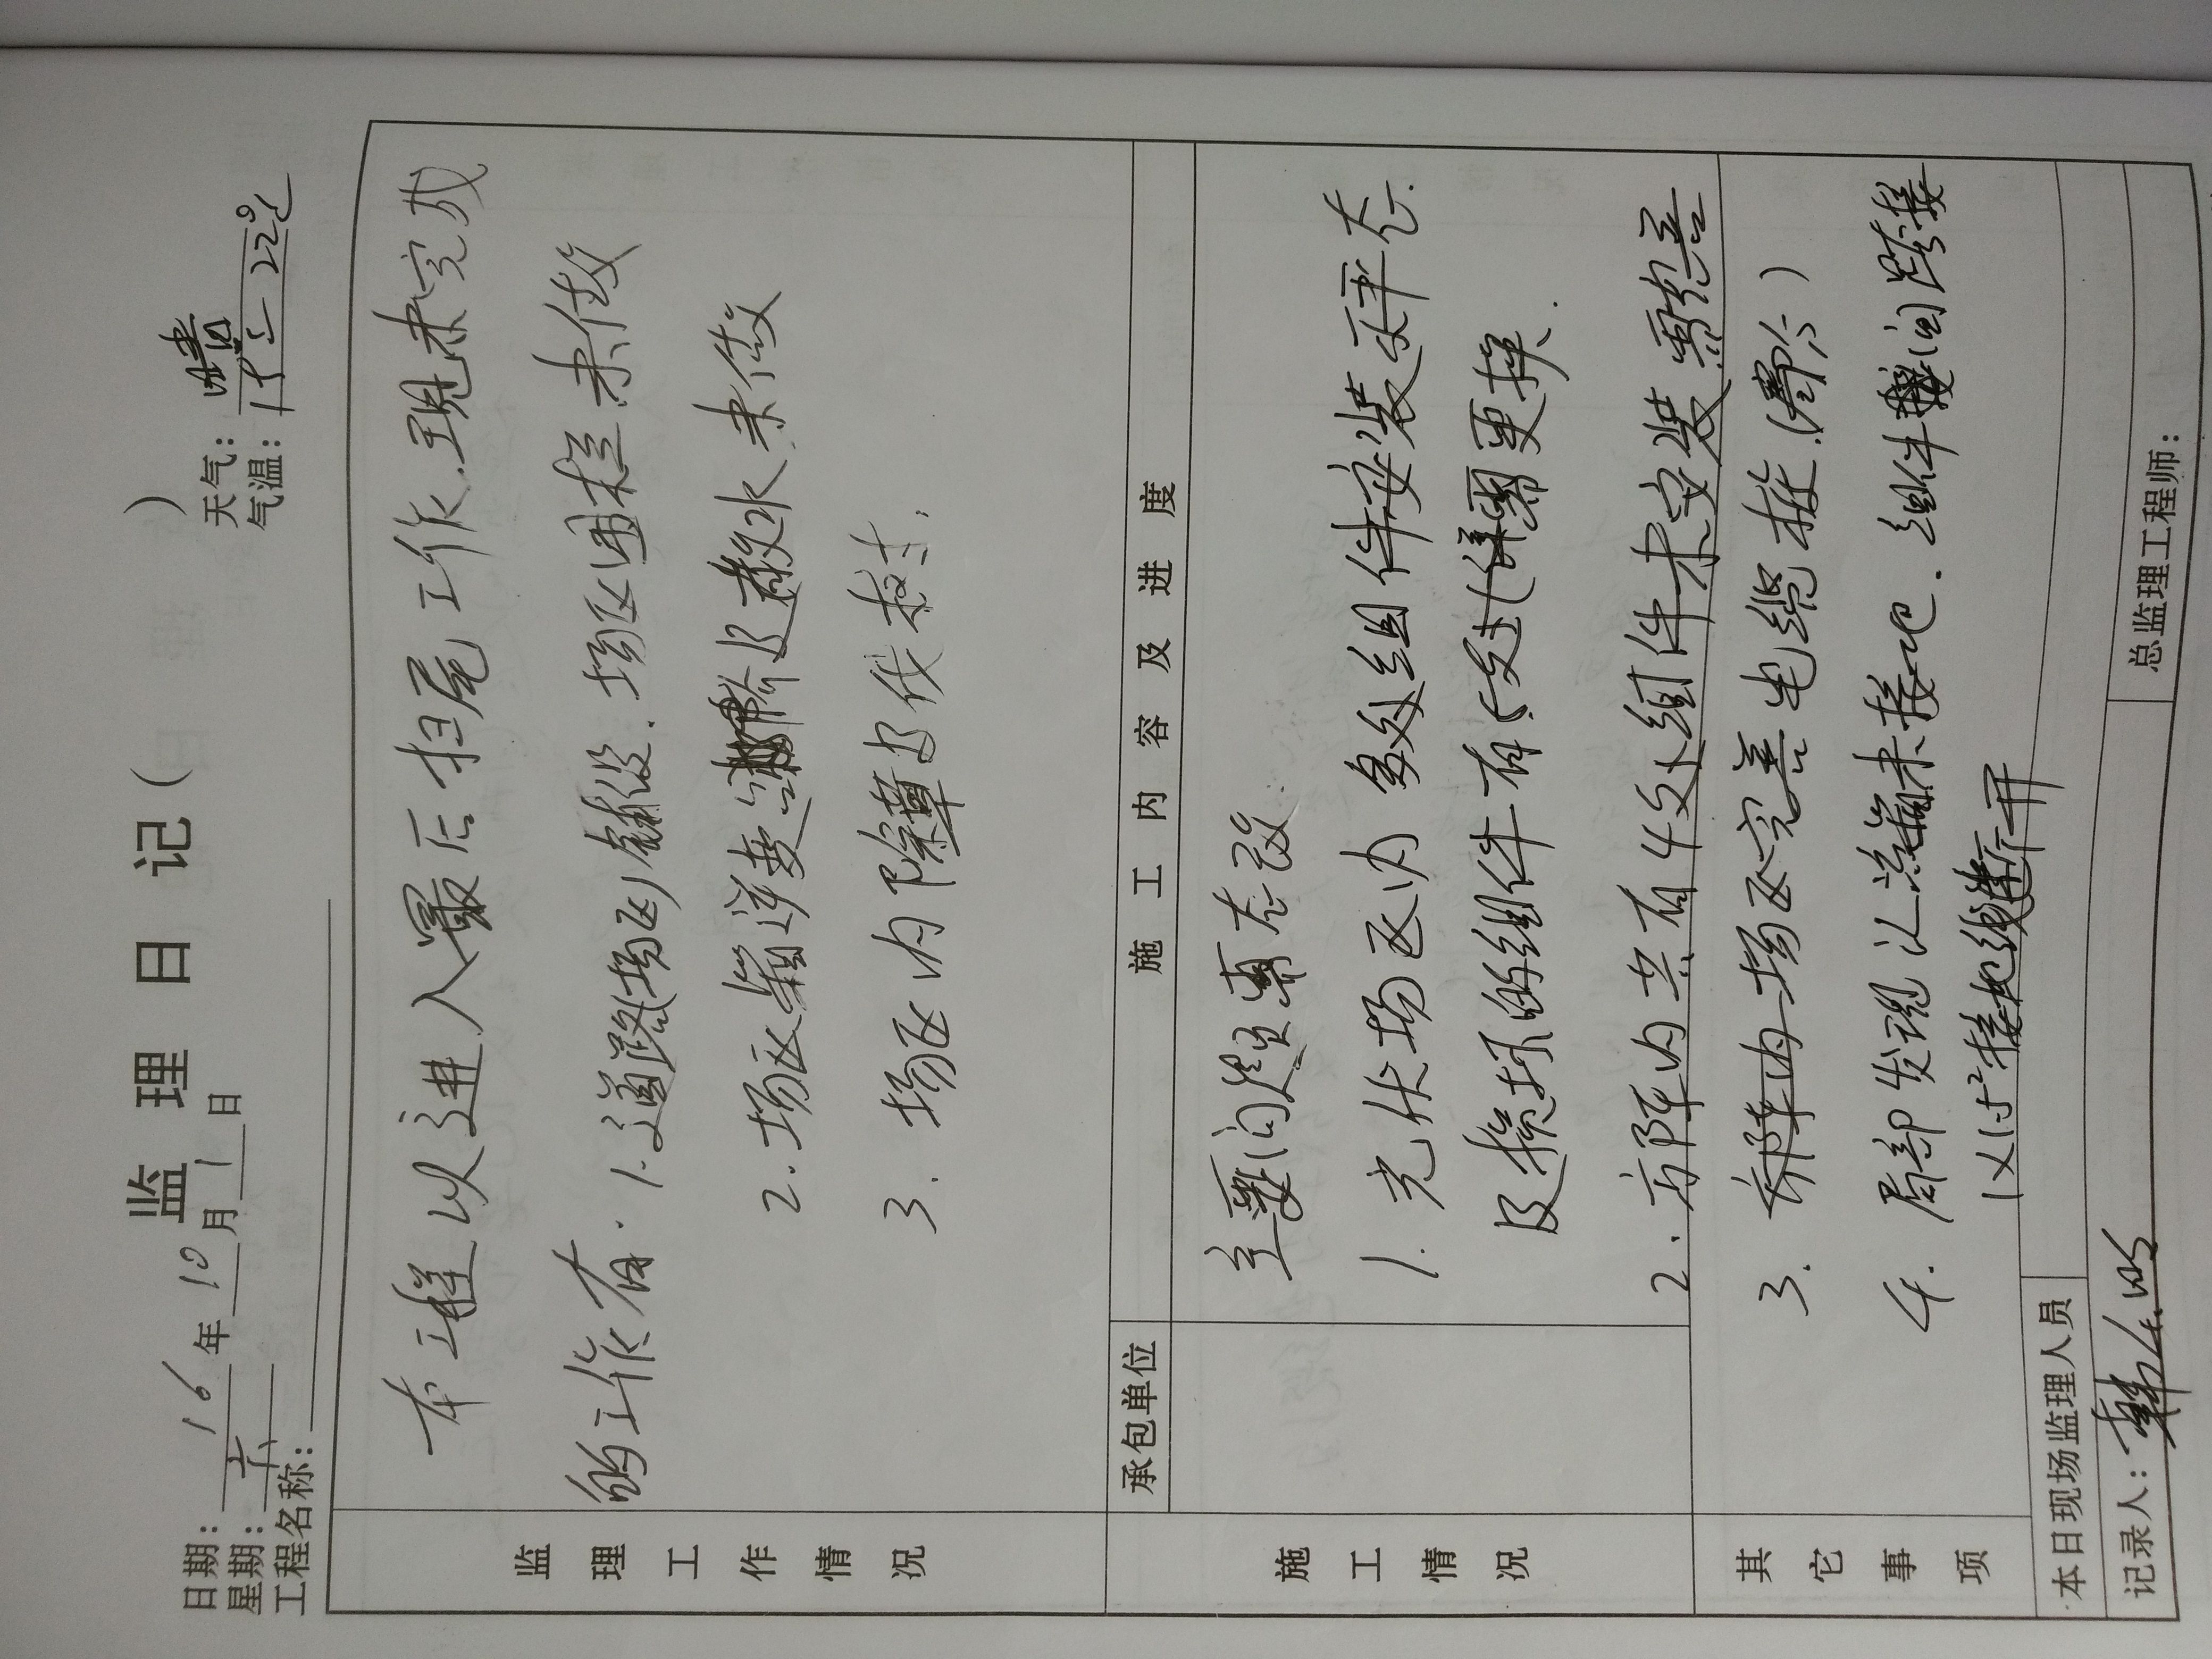 监理日记( )
日期: 16 年 10 月 1 日 天气: 晴
星期: 六 气温: 15-22℃
工程名称:
监理工作情况
本工程以进入最后扫尾工作.现未完成
的工作有. 1.道路(场区)铺设.场区围栏未做
2.场区箱逆变 散水未做
3.场区内除草及伐树.
施工情况
承包单位 施工内容及进度
主要问题有
1.光伏场区内多处组件安装不平
及损坏的组件有 处 需更换.
2.方阵内共有4处组件未安装需完善
3.方阵内场区完善电缆 .( )
其它事项
4.局部发现汇流箱未接地.组件间跨接
接地线断开
本日现场监理人员
记录人: 总监理工程师: